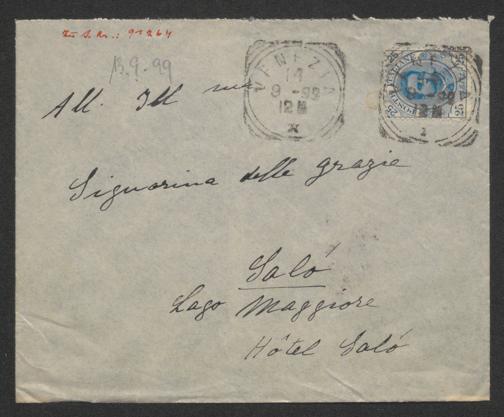 Z. S. Nr.: 91264
13.9.99
VENEZIA
14
9 -99
12 M
All. Ill ma
Signorina delle Grazie
Salò
Lago Maggiore
Hôtel Salò